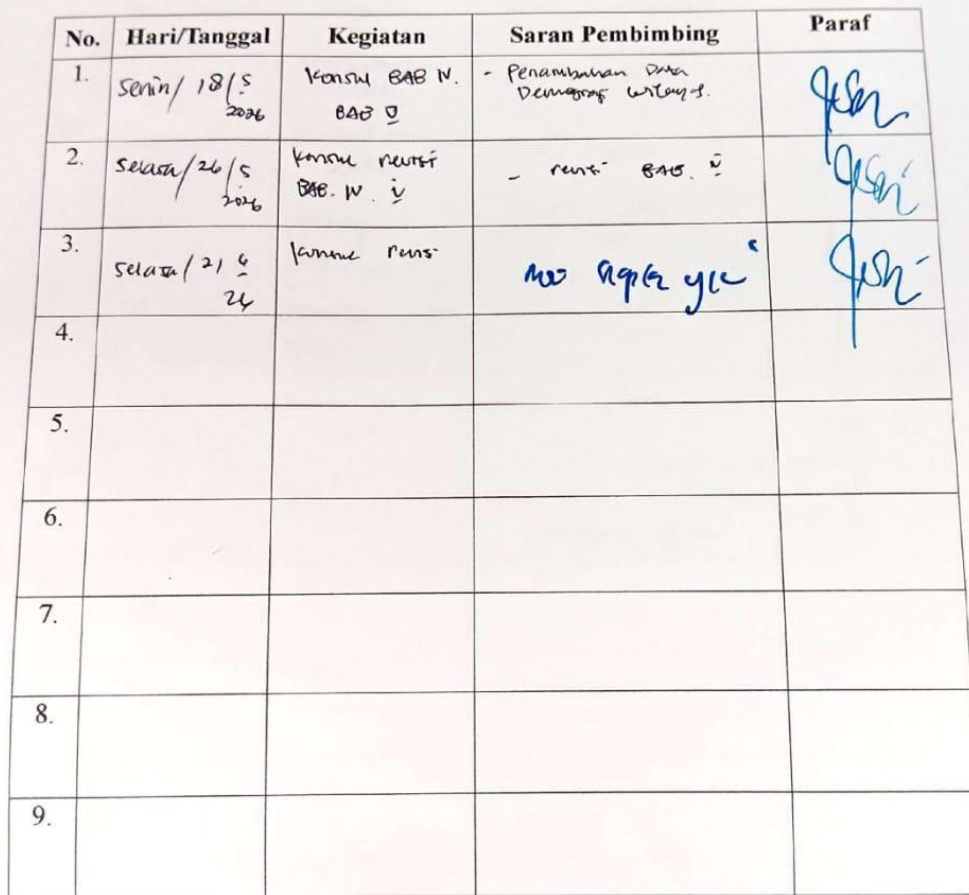 No. Hari/Tanggal Kegiatan Saran Pembimbing Paraf
1. Senin/ 18/5 2026 Konsul BAB IV. BAB V - Penambahan Data Demografi wilayah.
2. Selasa/26/5 2026 Konsul revisi BAB. IV. V - revisi BAB. V
3. Selasa/2/6 26 Konsul revisi
4.
5.
6.
7.
8.
9.